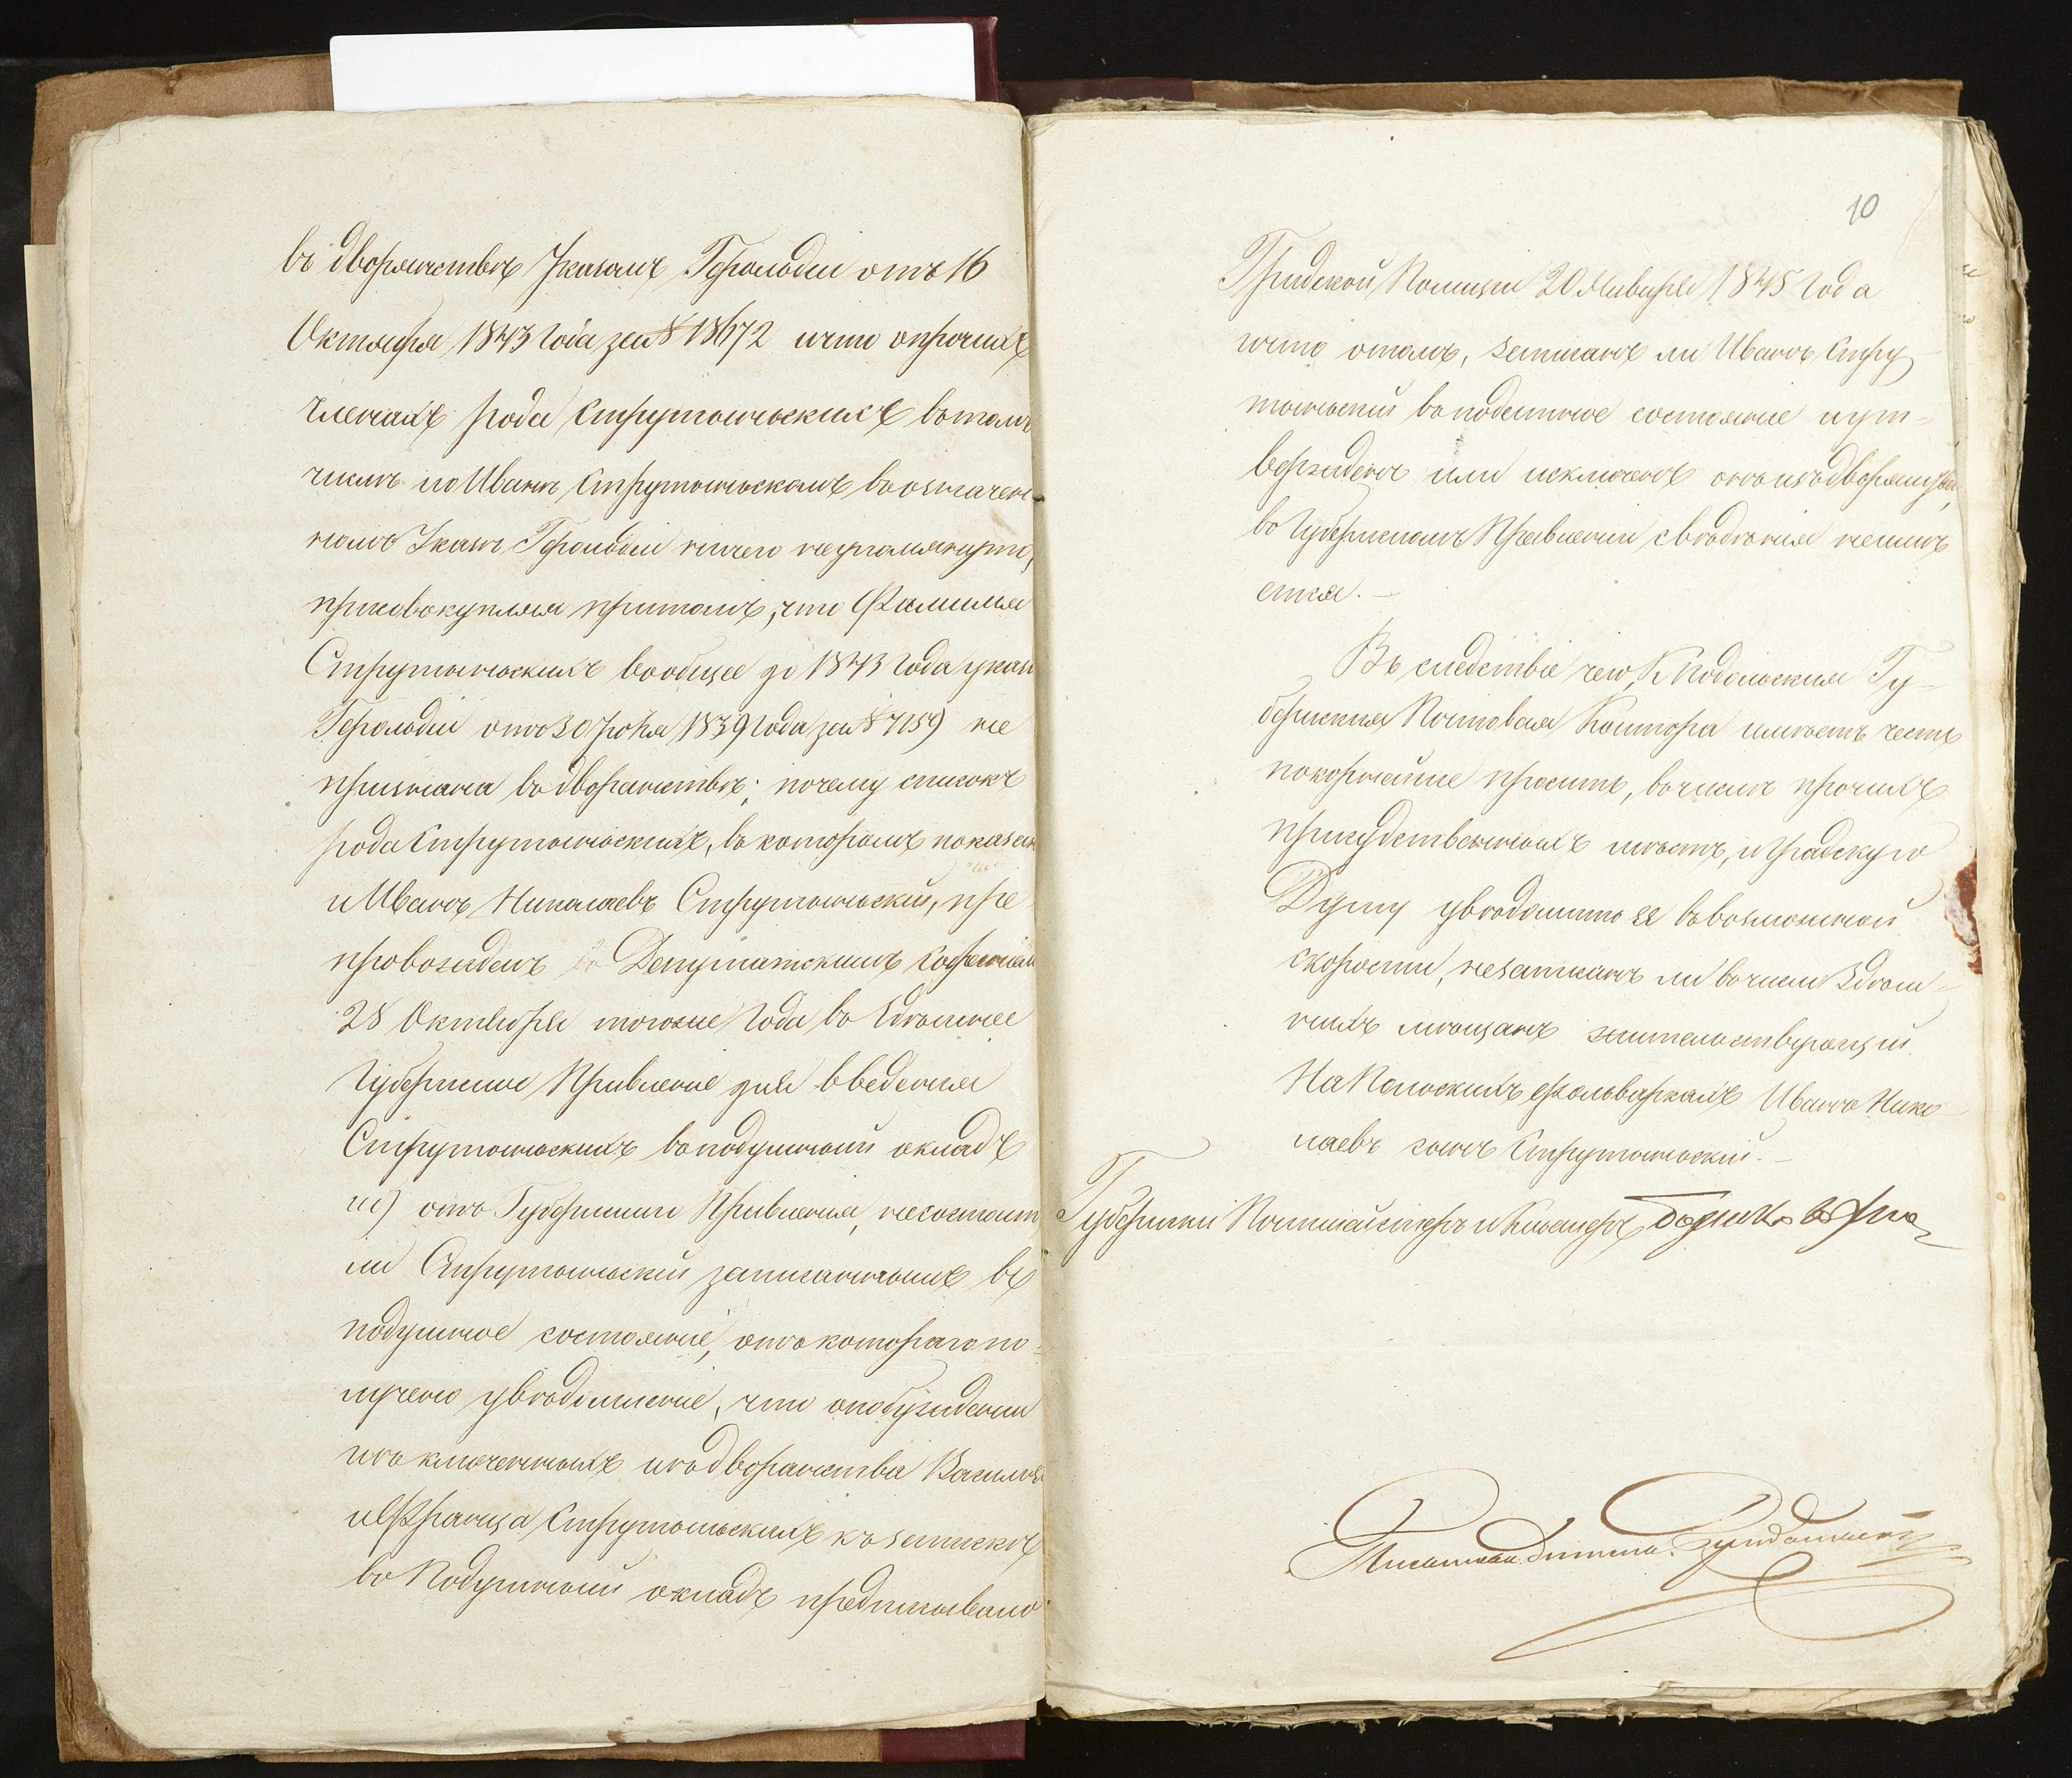 въ дворянствѣ Указомъ Герольдіи отъ 16
Октября 1843 года за № 18672 ичто опрочихъ
членахъ рода Струтынскихъ вътомъ
числѣ ио Иванѣ Струтынскомъ въозначен
номъ Указѣ Герольдіи ничего неупомянуто,
присовокупляя притомъ, что Фамилія
Струтынскихъ вообще до 1843 года указ
Герольдіи отъ 30 1839 года за № 7159 не
признана въдворянствѣ; почему списокъ
рода Струтынскихъ, въ которомъ показан
и Иванъ Николаевъ Струтынскій, пре
провожденъ Депутатскимъ Собраніем
28 Октября тогоже года въ здѣшнее
Губернское Правленіе для введенія
Струтынскихъ въподушный окладъ
отъ Губернскаго Правленія, несостоит
ли Струтынскій записаннымъ въ
подушное состояніе, отъ котораго по-
лучено увѣдомленіе, что опобужденіи
изъ дворянства
и Франца Струтынскихъ къ запискѣ
въ Подушный окладъ предписывано
10
Градской Полиціи 20 Января 1845 года
ичто отомъ, записанъ ли Иванъ Стру
тынскій въподушное состояніе иут-
вержденъ или исключенъ онъ изъ дворянства,
въ Губернскомъ Правленіи свѣдѣнія неимѣ
ется. —
Въ слѣдствіе чего, К. Подольская Гу-
бернская Почтовая Контора имѣетъ честь
покорнѣйше просить, вчислѣ прочихъ
присудственныхъ мѣстъ, и Градскую
Думу увѣдомить ее въвозможной
скорости, незаписанъ ли вчислѣ здѣш-
нихъ мѣщанъ жительствующій
На Польскихъ фольваркахъ Иванъ Нико
лаевъ сынъ Струтынскій. —
Губернскій Почтмейстеръ и Кавалеръ